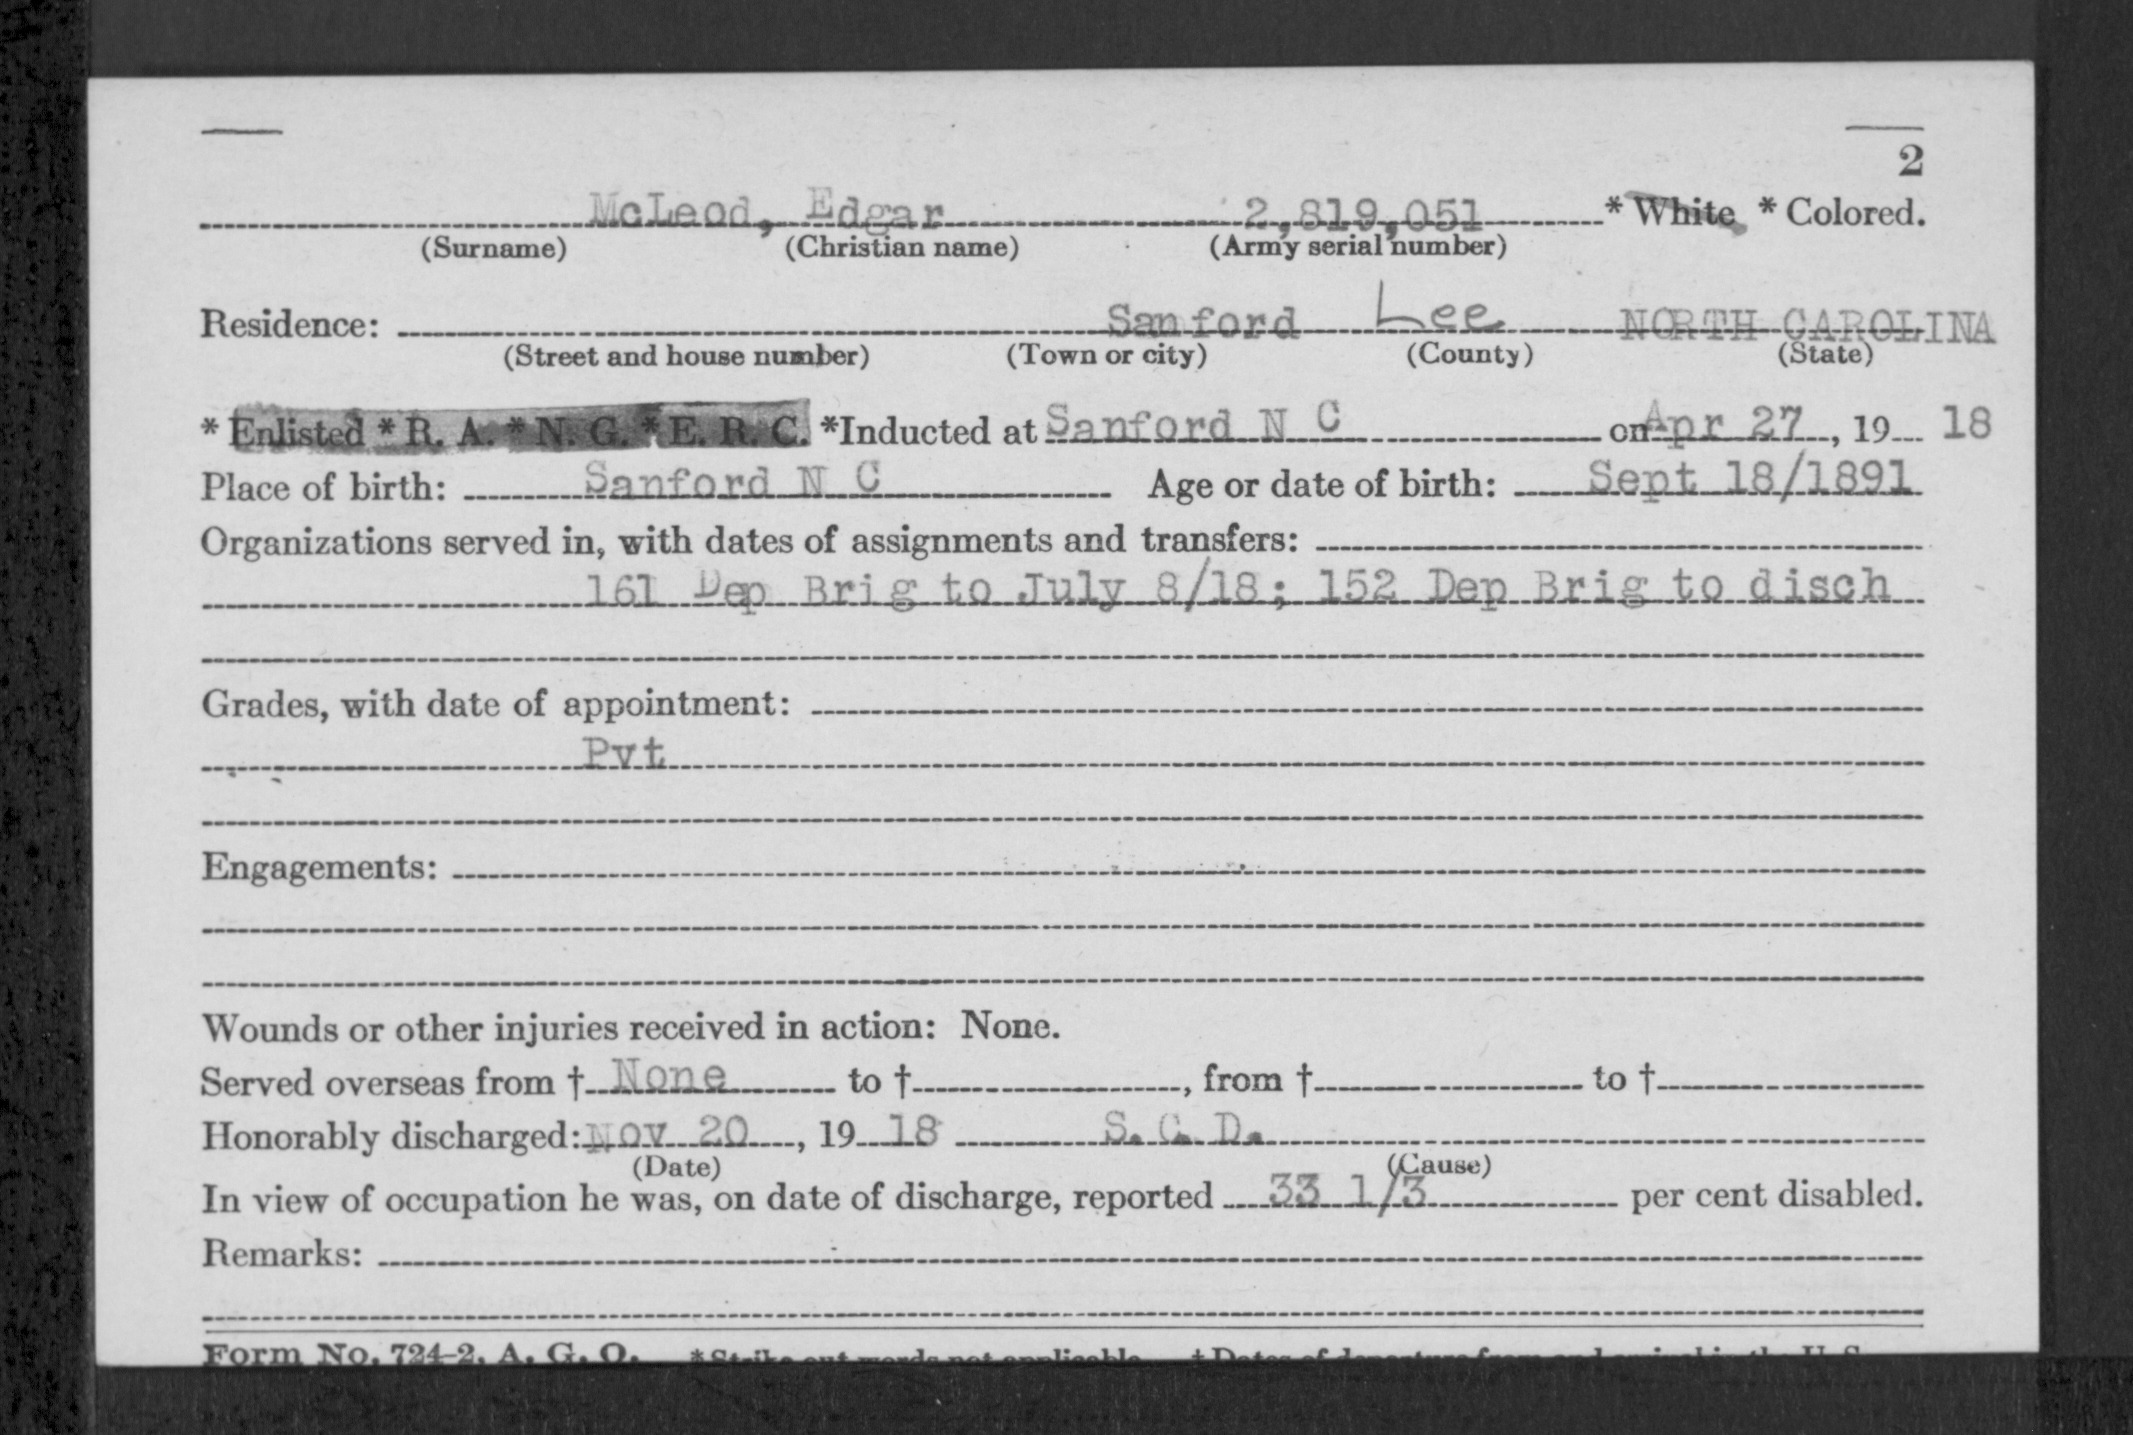 2
McLeod, Edgar 2,819,051 * White * Colored.
(Surname) (Christian name) (Army serial number)
Residence: Sanford Lee NORTH CAROLINA
(Street and house number) (Town or city) (County) (State)
* Enlisted * R. A. * N. G. * E. R. C. *Inducted at Sanford N C on Apr 27, 19 18
Place of birth: Sanford N C Age or date of birth: Sept 18/1891
Organizations served in, with dates of assignments and transfers:
161 Dep Brig to July 8/18; 152 Dep Brig to disch
Grades, with date of appointment:
Pvt
Engagements:
Wounds or other injuries received in action: None.
Served overseas from † None to †, from † to †
Honorably discharged: Nov 20, 19 18 S. C. D.
(Date) (Cause)
In view of occupation he was, on date of discharge, reported 33 1/3 per cent disabled.
Remarks:
Form No. 724-2, A. G. O. *Strike out words not applicable. † Dates of departure from and arrival in the U. S.